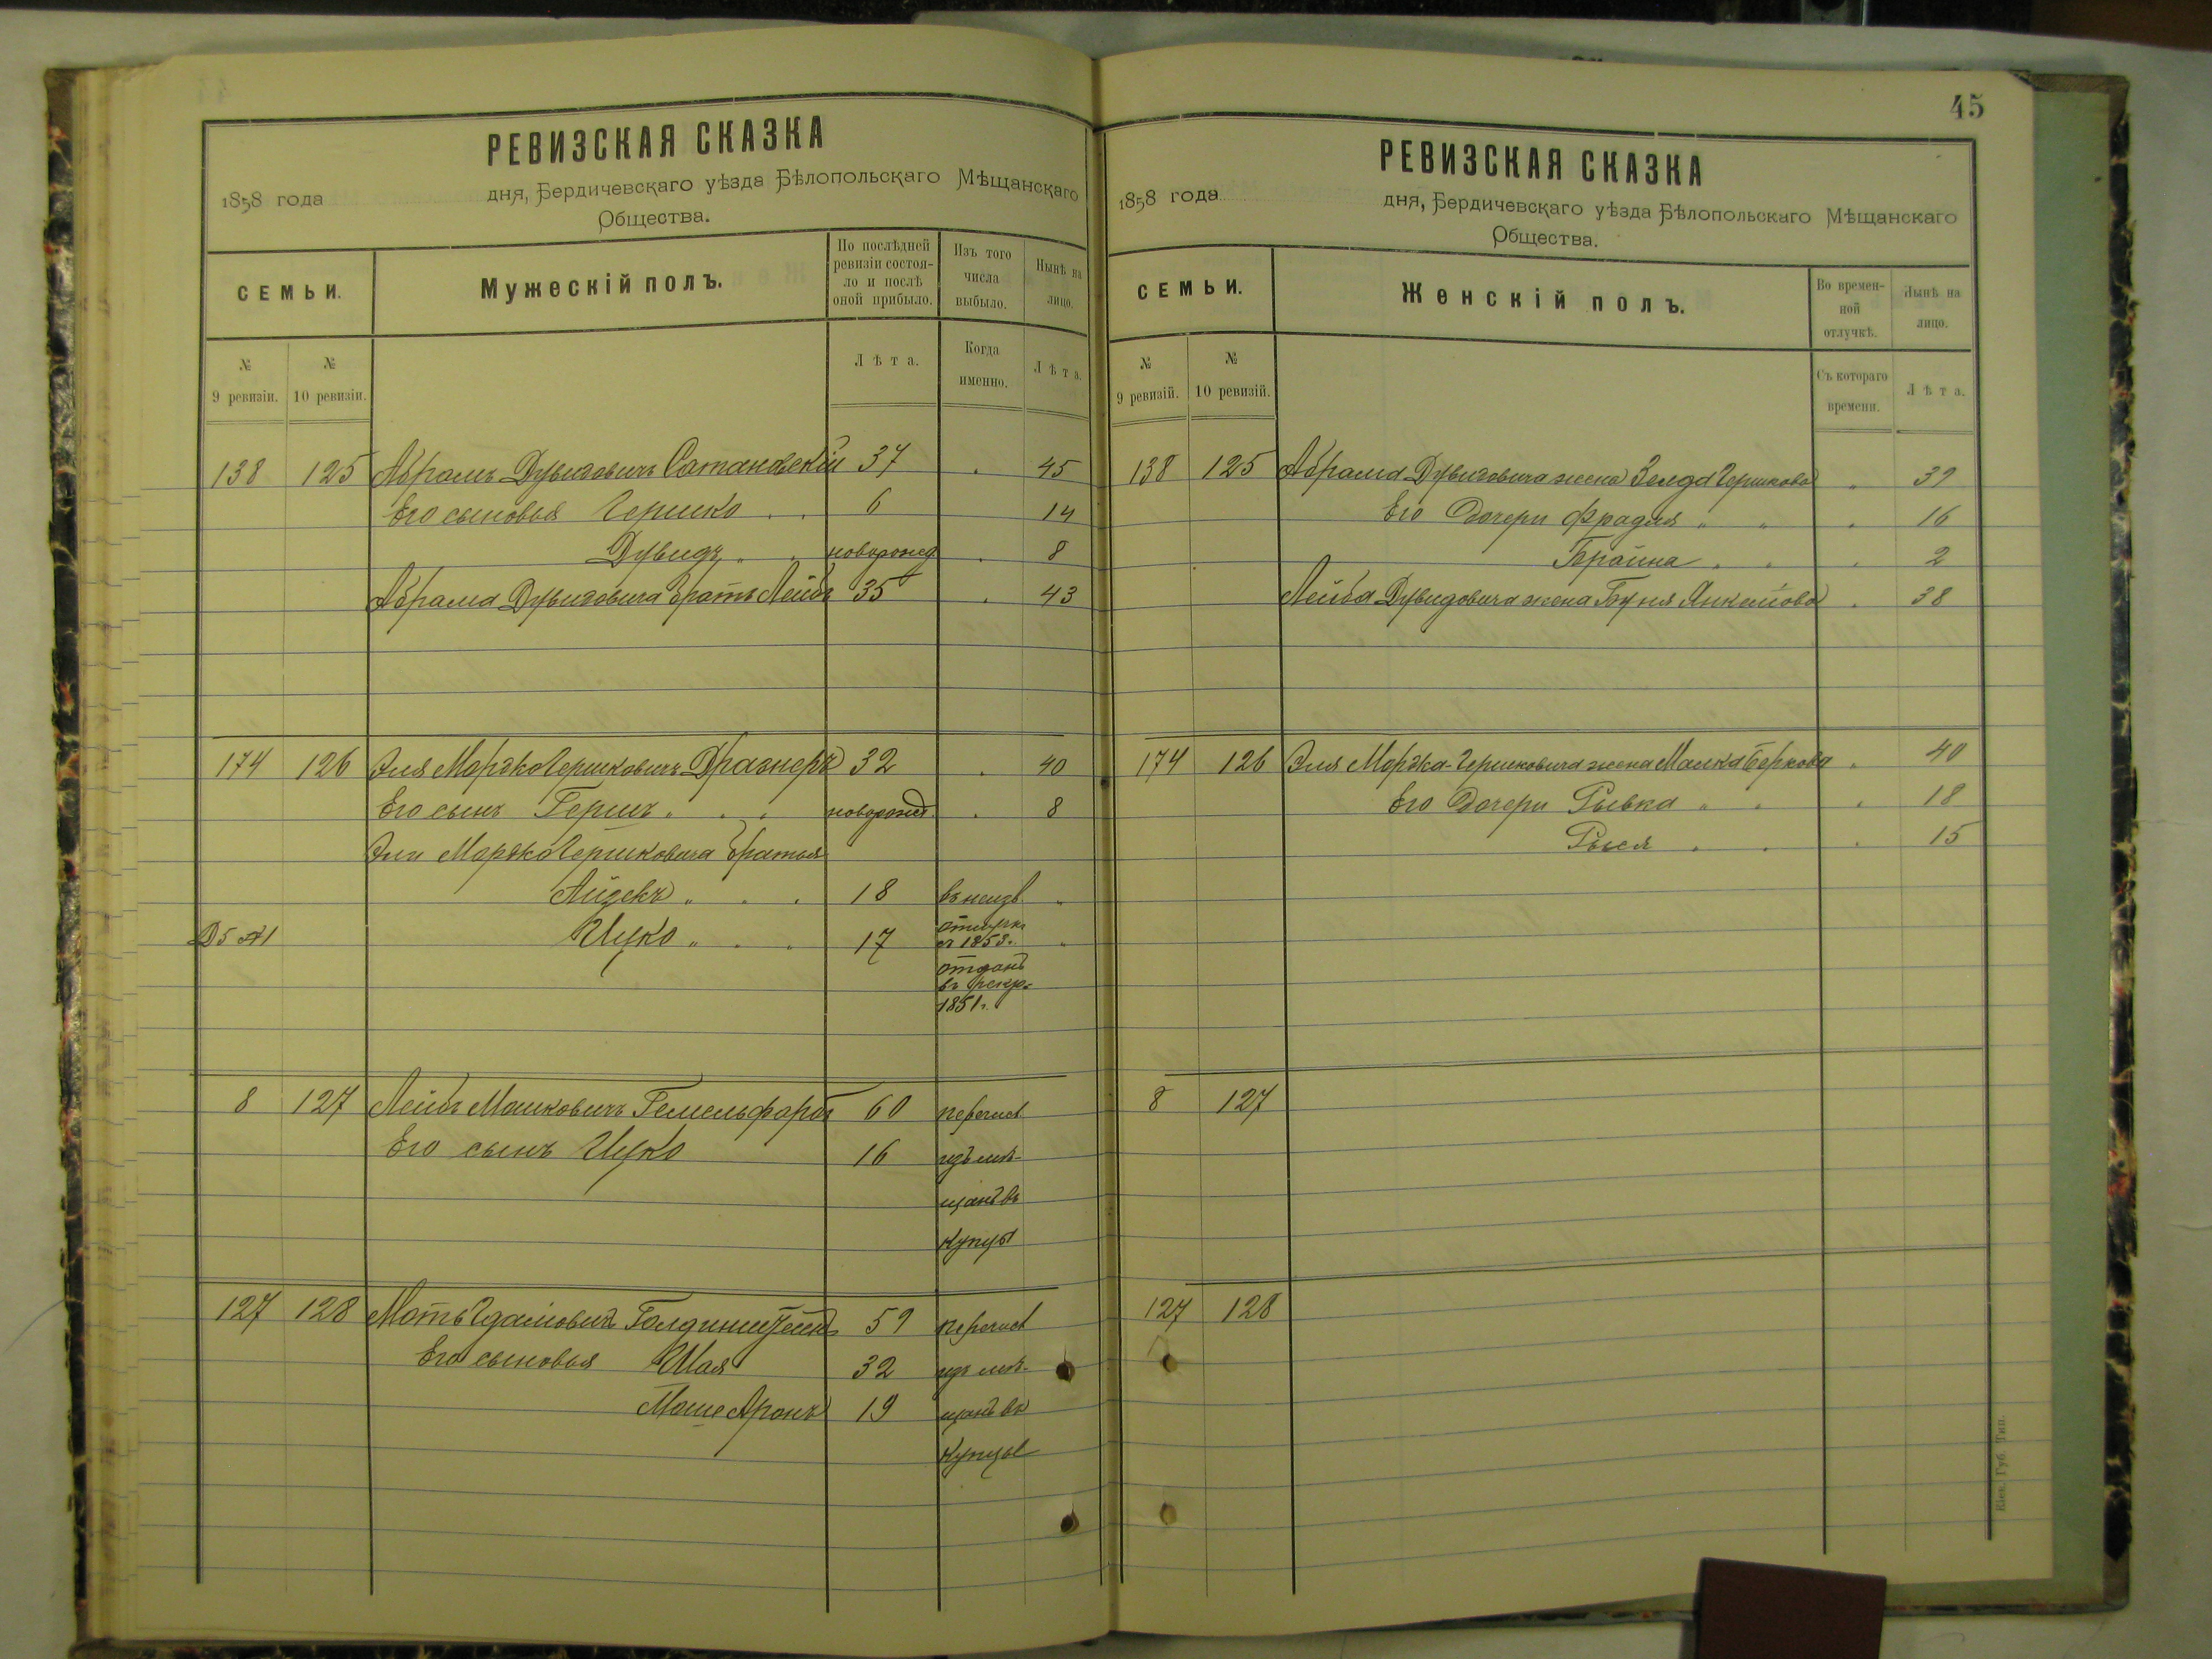 45
РЕВИЗСКАЯ СКАЗКА
1858 года дня, Бердичевскаго уѣзда Бѣлопольскаго Мѣщанскаго
Общества.
СЕМЬИ.
Мужескій полъ.
По послѣдней ревизіи состоя-ло и послѣ оной прибыло.
Изъ того числа выбыло.
Нынѣ на лицо.
№ 9 ревизіи.
№ 10 ревизіи.
Лѣта.
Когда именно.
Лѣта.
138 125 Абрамъ Дувидовичъ Сатановскій 37 45
Его сыновья Гершко 6 14
Дувидъ новорожд 8
Абрама Дувидовича братъ Лейба 35 43
174 126 Эля Мордко Гершковичъ Дразнеръ 32 40
Его сынъ Гершъ новорожд. 8
Эли Мордко Гершковича братья
Айзекъ 18 въ неизв.
отлучкѣ
съ 1853г.
Ицко 17
отданъ
въ рекр.
1851г.
8 127 Лейба Мошковичъ Гемельфарбъ 60 перечис
Его сынъ Ицко 16 изъ мѣ-
щанъ въ
купцы
127 128 59 перечис
Его сыновья Шая 32 изъ мѣ-
Моше Аронъ 19 щанъ въ
купцы
РЕВИЗСКАЯ СКАЗКА
1858 года дня, Бердичевскаго уѣзда Бѣлопольскаго Мѣщанскаго
Общества.
СЕМЬИ.
Женскій полъ.
Во времен-ной отлучкѣ.
Нынѣ на лицо.
№ 9 ревизій.
№ 10 ревизій.
Съ котораго времени.
Лѣта.
138 125 Абрама Дувидовича жена Зелда Гершкова 39
Его дочери Фрадля 16
Брайна 2
Лейба Дувидовича жена Буня Янкелiова 38
174 126 Эля Мордка-Гершковича жена Малка Беркова 40
Его дочери Рывка 18
Рыся 15
8 127
127 128
Кіев. Губ. Тип.